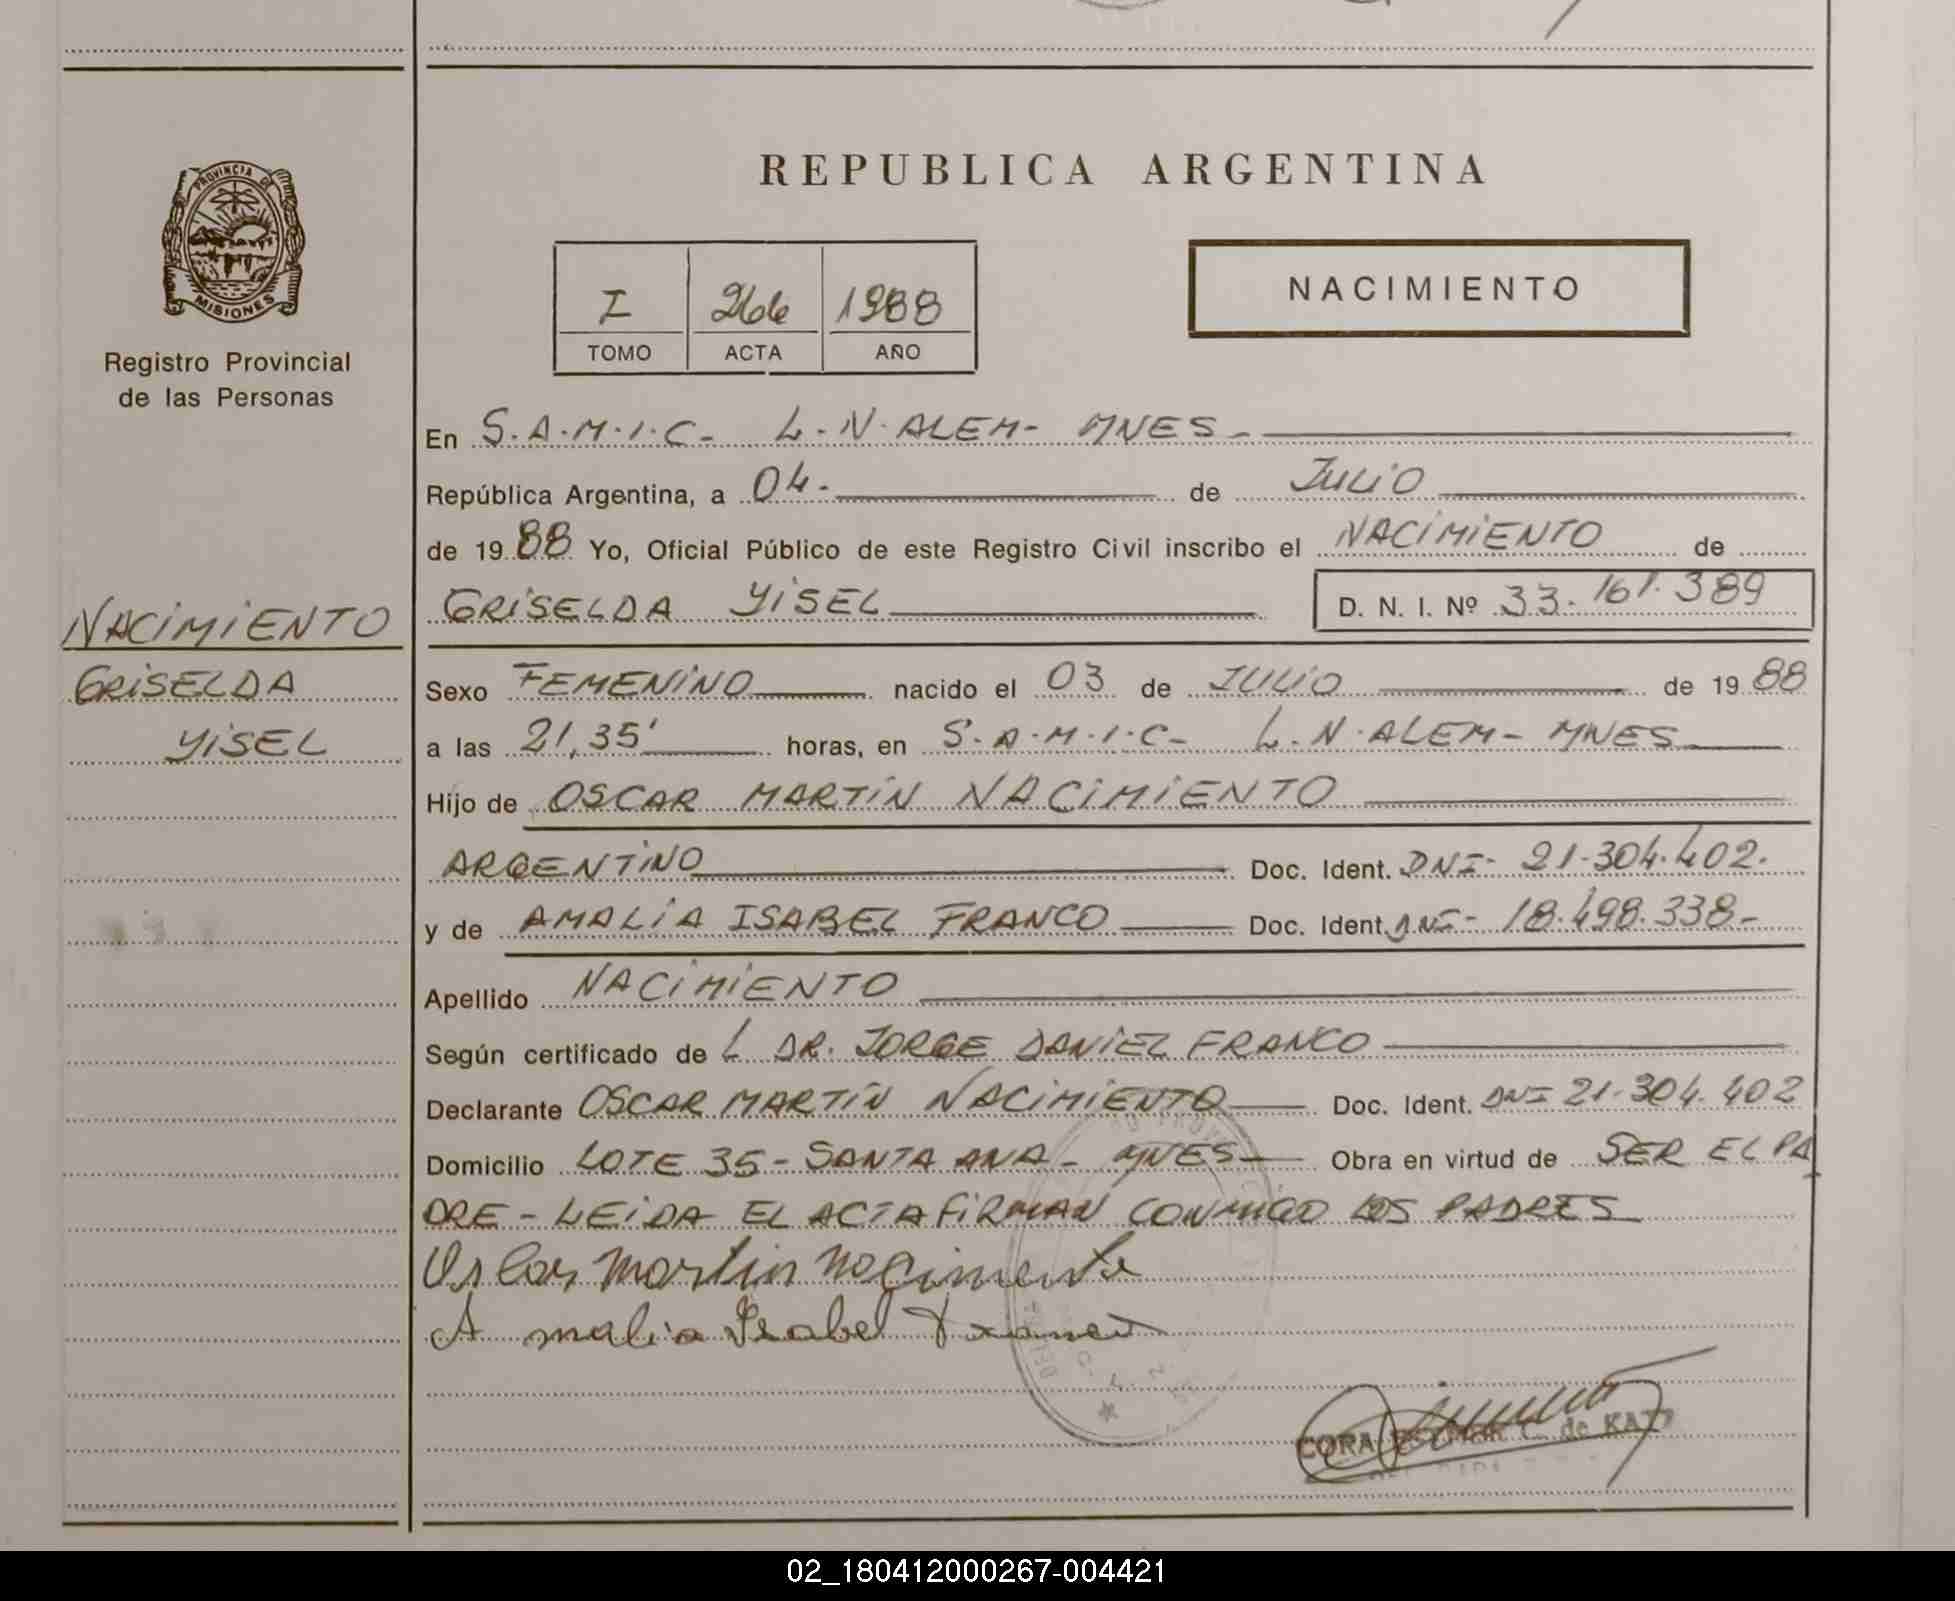 PROVINCIA DE
MISIONES
Registro Provincial
de las Personas
NACIMIENTO
GRISELDA
YISEL
REPUBLICA ARGENTINA
I 266 1988
TOMO ACTA AÑO
NACIMIENTO
En S.A.M.I.C- L.N.ALEM- MNES-
República Argentina, a 04- de JULIO
de 1988 Yo, Oficial Público de este Registro Civil inscribo el NACIMIENTO de
GRISELDA YISEL D. N. I. Nº 33.161.389
Sexo FEMENINO nacido el 03 de JULIO de 1988
a las 21,35' horas, en S.A.M.I.C- L.N.ALEM- MNES
Hijo de OSCAR MARTÍN NACIMIENTO
ARGENTINO Doc. Ident. DNI- 21.304.402.
y de AMALIA ISABEL FRANCO Doc. Ident. DNI- 18.498.338-
Apellido NACIMIENTO
Según certificado de L DR. JORGE DANIEL FRANCO
Declarante OSCAR MARTÍN NACIMIENTO Doc. Ident. DNI 21.304.402
Domicilio LOTE 35- SANTA ANA- MNES Obra en virtud de SER EL PA
DRE - LEIDA EL ACTA FIRMAN CONMIGO LOS PADRES
Oscar Martin Nacimento
Amalia Isabel Franco
CORA de KATZ
02_180412000267-004421